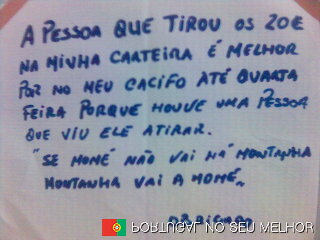 A PESSOA QUE TIROU OS 20€
NA MINHA CARTEIRA É MELHOR
POR NO MEU CACIFO ATÉ QUARTA
FEIRA PORQUE HOUVE UMA PESSOA
QUE VIU ELE ATIRAR.
"SE MOMÉ NÃO VAI HÁ MONTANHA
MONTANHA VAI A MOMÉ"
OBRIGADO
PORTUGAL NO SEU MELHOR